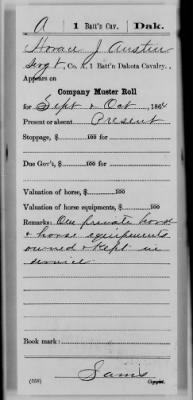 A | 1 Batt'n Cav. | Dak.
Horace J Austin
Sergt, Co. A, 1 Batt'n Dakota Cavalry.
Appears on
Company Muster Roll
for Sept & Oct, 1864
Present or absent Present
Stoppage, $ 100 for
Due Gov't, $ 100 for
Valuation of horse, $ 100
Valuation of horse equipments, $ 100
Remarks: One private horse
& horse equipments
owned & kept in
service
Book mark:
(358)
Copyist.